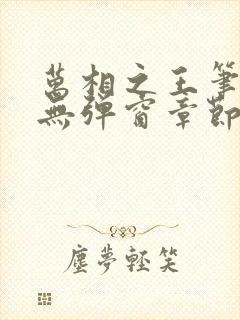 萬相之王筆
無彈窗章節
塵夢輕笑